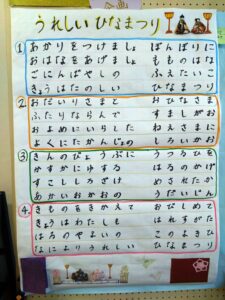 うれしい ひなまつり
① あかりをつけましょ ぼんぼりに
おはなをあげましょ もものはな
ごにんばやしの ふえたいこ
きょうはたのしい ひなまつり
② おだいりさまと おひなさま
ふたりならんで すましがお
およめにいらした ねえさまに
よくにたかんじょの しろいかお
③ きんのびょうぶに うつるひを
かすかにゆする はるのかぜ
すこししろざけ めされたか
あかいおかおの うだいじん
④ きものをきかえて おびしめて
きょうはわたしも はれすがた
はるのやよいの このよきひ
なによりうれしい ひなまつり